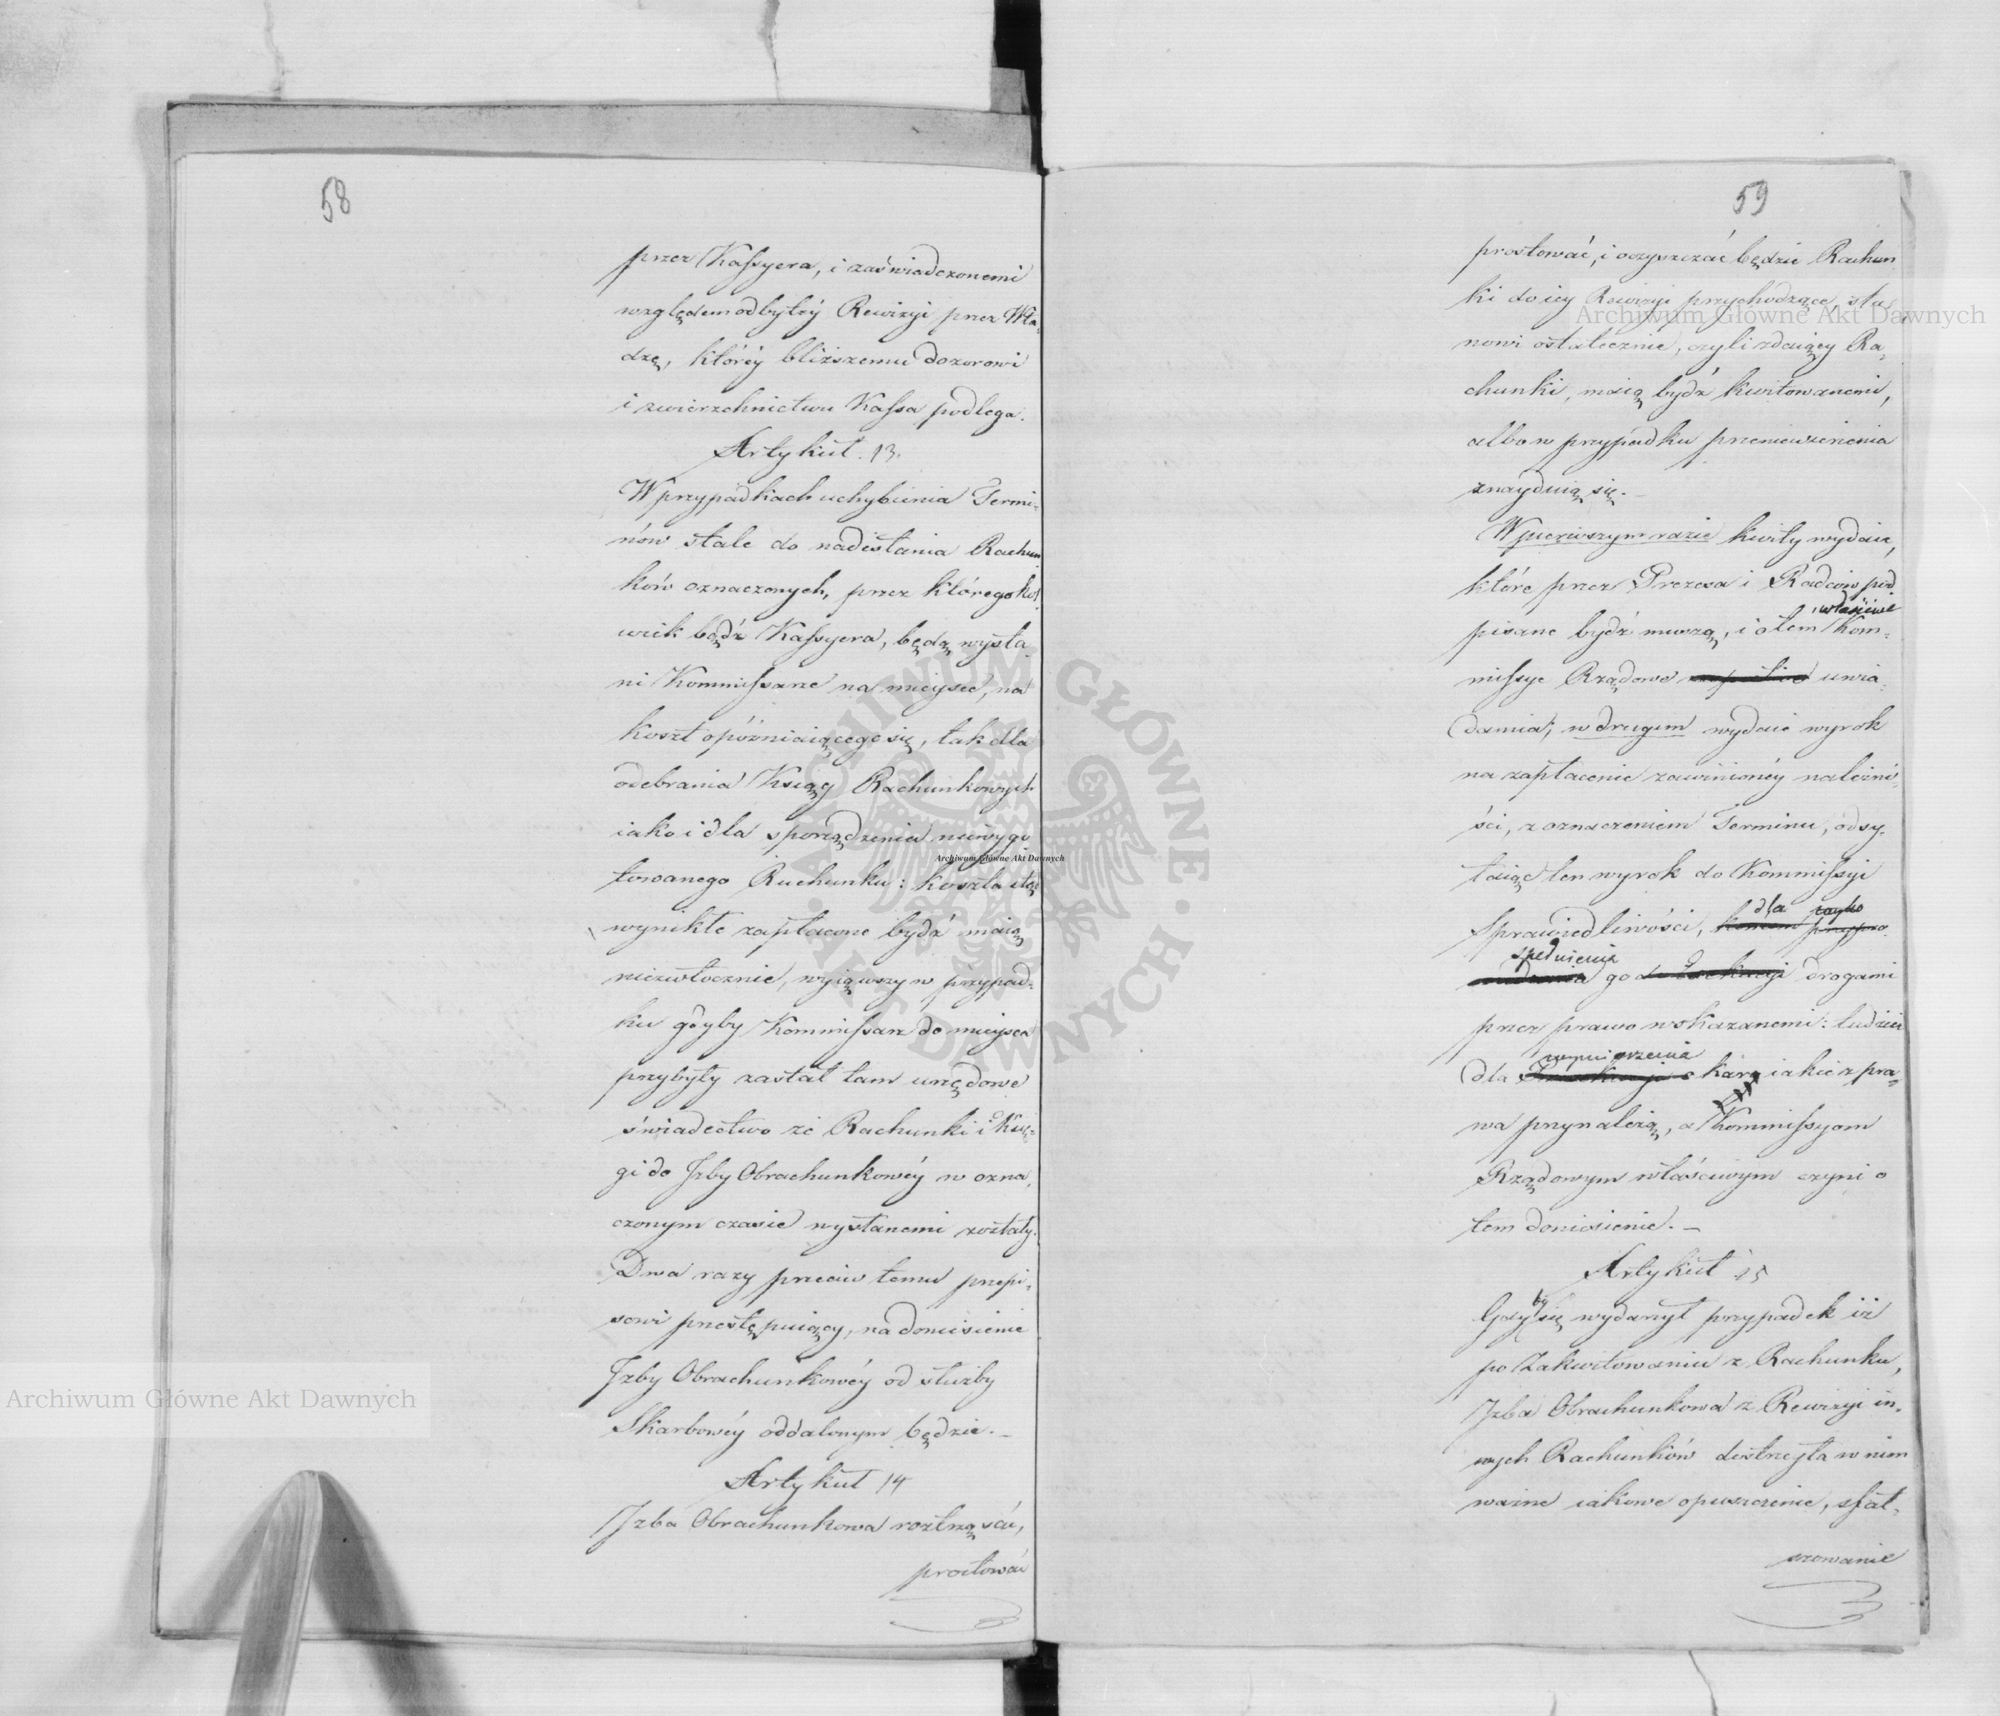 58
przez Kassyera, i zaświadczonemi
względem odbytéy Rewizyi przez Wła-
dzę, któréy bliższemu dozorowi
i zwierzchnictwu Kassa podlega.
Artykuł 13.
W przypadkach uchybienia Termi-
nów stale do nadesłania Rachun
ków oznaczonych, przez któregokol
wiek bądź Kassyera, będą wysła
ni Kommissarze na mieysce, na
koszt opóźniaiącego się, tak dla
odebrania Ksiąg Rachunkowych
iako i dla sporządzenia nieprzygo
towanego Rachunku: koszta ztąd
wynikłe zapłacone bydź maią
niezwłocznie, wyiąwszy w przypad-
ku gdyby Kommissarz do mieysca
przybyły zastał tam urzędowe
świadectwo że Rachunki i Księ-
gi do Jzby Obrachunkowéy w ozna
czonym czasie wysłanemi zostały.
Dwa razy przeciw temu przepi-
sowi przestępuiący, na doniesienie
Jzby Obrachunkowéy od służby
Skarbowéy oddalonym będzie.
Artykuł 14
Jzba Obrachunkowa roztrząsać,
prostować
59
prostować, i oczyszczać będzie Rachun
ki do iey Rewizyi przychodzące, sta-
nowi ostatecznie, czyli zdaiący Ra-
chunki, maią bydź kwitowanemi,
albo w przypadku przeniewierzenia
znayduią się.
W pierwszym razie kwity wydaie,
które przez Prezesa i Radców pod
pisane bydź muszą, i o tém właściwe Kom-
missye Rządowe uwia-
damia; w drugim wydaie wyrok
na zapłacenie zawinionéy należno-
ści, z oznaczeniem Terminu, odsy-
łaiąc ten wyrok do Kommissyi
Sprawiedliwości, dla
spełnienia go drogami
przez prawo wskazanemi: tudzież
dla wymierzenia kary iakie z pra-
wa przynależą, a Kommissyom
Rządowym właściwym czyni o
tem doniesienie.
Artykuł 15
Gdyby się wydarzył przypadek iż
po Zakwitowaniu z Rachunku,
Jzba Obrachunkowa z Rewizyi in-
nych Rachunków dostrzegła w nim
ważne iakowe opuszczenie, sfał-
szowanie
Archiwum Główne Akt Dawnych
Archiwum Główne Akt Dawnych
Archiwum Główne Akt Dawnych
ARCHIWUM GŁÓWNE AKT DAWNYCH